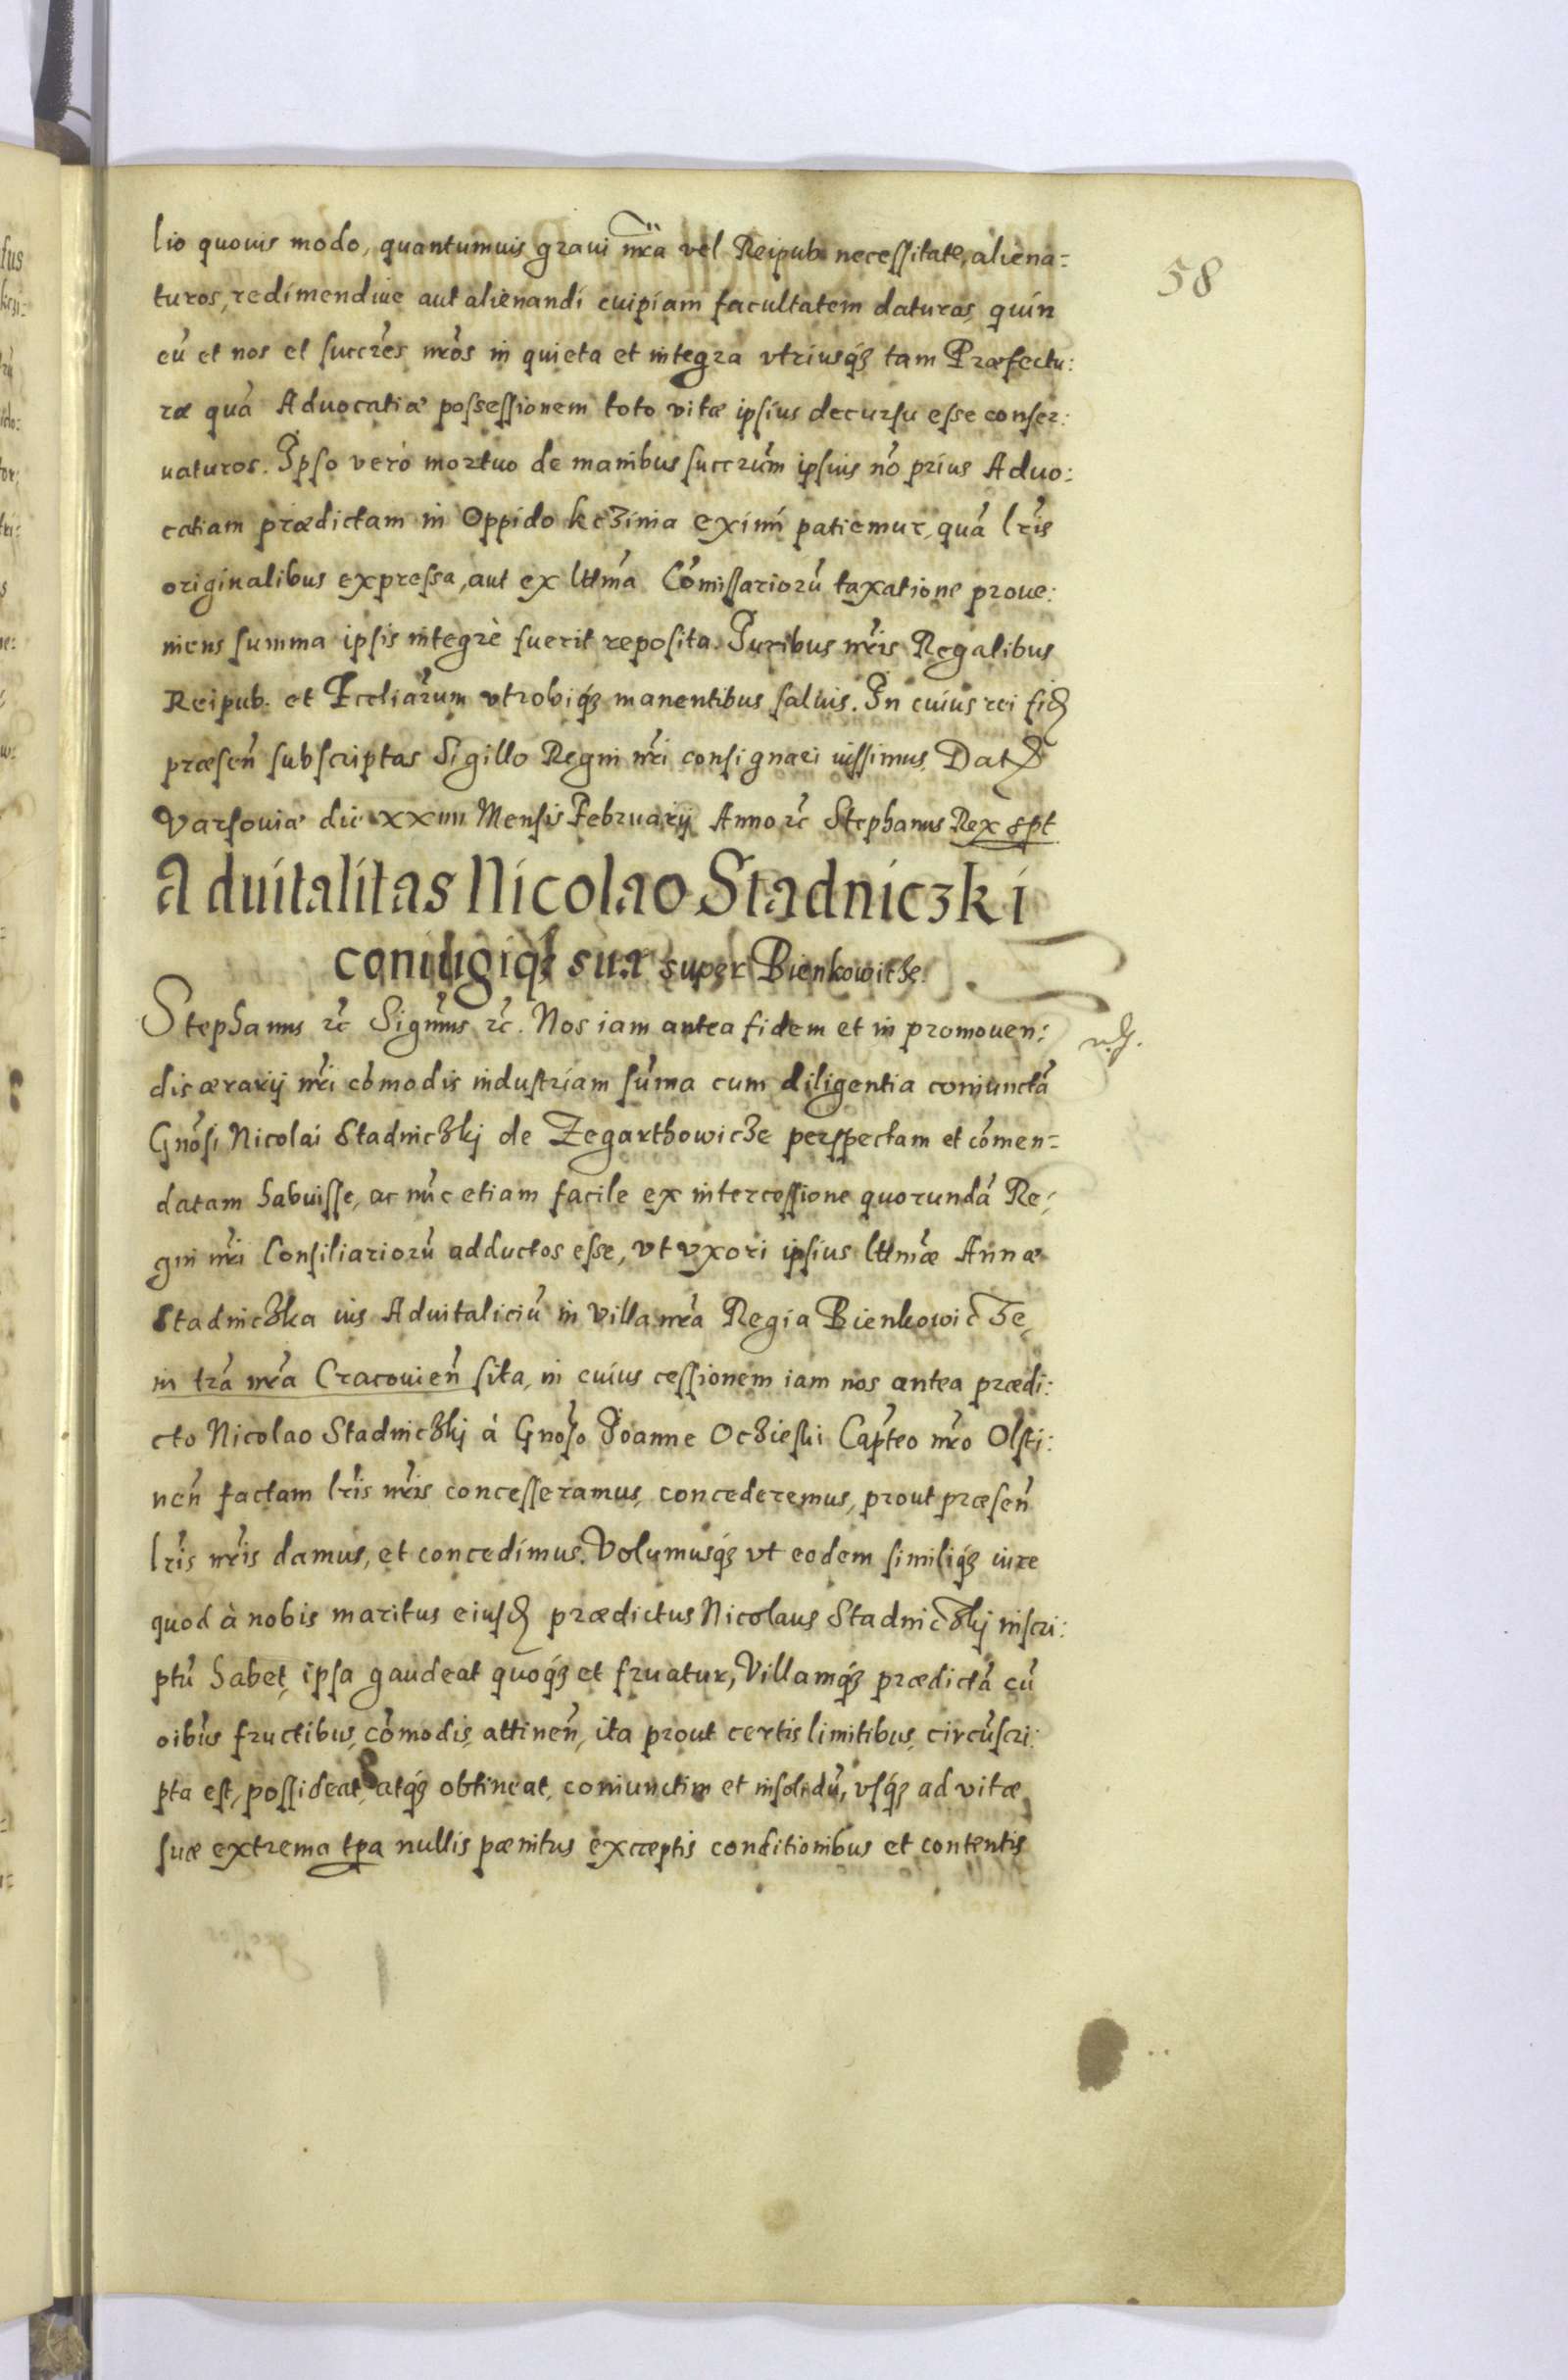 58
lio quouis modo, quantumuis graui nr̃a vel Reipub. necessitate, aliena=
turos, redimendiue aut alienandi cuipiam facultatem daturos, quin
eũ et nos et succr̃es nr̃os in quieta et integra vtriusq́ꝫ tam Præfectu:
ræ quã Aduocatiæ possessionem toto vitæ ipsius decursu esse conser:
uaturos. Ipso verò mortuo de manibus succrũm ipsius nõ prius Aduo:
catiam prædictam in Oppido kczinia eximi patiemur, quã lr̃is
originalibus expressa, aut ex lttm̃a Cõmissariorũ taxatione proue:
niens summa ipsis integrè fuerit reposita. Iuribus nr̃is Regalibus
Reipub. et Eccliar̃um vtrobiq́ꝫ manentibus saluis. In cuius rei fiđ
præseñ subscriptas Sigillo Regni nr̃i consignari iussimus. Dat̃
Varsouiæ die xxiiii Mensis Februarij Anno rc̃ Stephanus Rex spt
Aduitalitas Nicolao Stadniczki
coniugiq́ꝫ suæ super Bienkowicze.
Stephanus rc̃ Sigñius rc̃. Nos iam antea fidem et in promouen:
dis ærarij nr̃i cõmodis industriam sũma cum diligentia coniunctã
Gnõsi Nicolai Stadniczkj de Zegarthowicze perspectam et cõmen=
datam habuisse, ac nũc etiam facile ex intercessione quorundã Re:
gni nr̃i Consiliariorũ adductos esse, vt vxori ipsius lttm̃æ Annæ
Stadniczka ius Aduitaliciũ in villa nr̃a Regia Bienkowicze,
in tr̃a nr̃a Cracouieñ sita, in cuius cessionem iam nos antea prædi:
cto Nicolao Stadniczkj à Gnõso Joanne Oczieski Capt̃eo nr̃o Olsti:
neñ factam lr̃is nr̃is concesseramus, concederemus, prout præseñ
lr̃is nr̃is damus, et concedimus. Volumusq́ꝫ vt eodem similiq́ꝫ iure
quod à nobis maritus eiusđ prædictus Nicolaus Stadniczkj inscri:
ptũ habet, ipsa gaudeat quoq́ꝫ et fruatur, Villamq́ꝫ prædictã cũ
oib̃us fructibus, cõmodis, attineñ, ita prout certis limitibus, circũscri:
pta est, possideat, atq́ꝫ obtineat, coniunctim et insolidũ, vsq́ꝫ ad vitæ
suæ extrema tpa nullis pænitus exceptis conditionibus et contentis